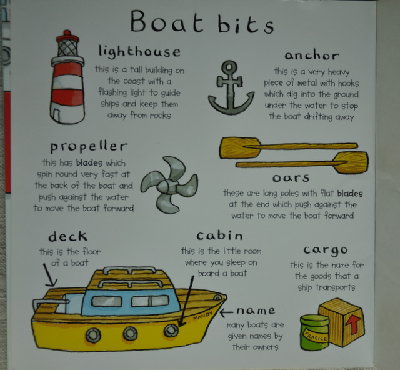 Boat bits
lighthouse
this is a tall building on
the coast with a
flashing light to guide
ships and keep them
away from rocks
anchor
this is a very heavy
piece of metal with hooks
which dig into the ground
under the water to stop
the boat drifting away
propeller
this has blades which
spin round very fast at
the back of the boat and
push against the water
to move the boat forward
oars
these are long poles with flat blades
at the end which push against the
water to move the boat forward
deck
this is the floor
of a boat
cabin
this is the little room
where you sleep on
board a boat
cargo
this is the name for
the goods that a
ship transports
name
many boats are
given names by
their owners